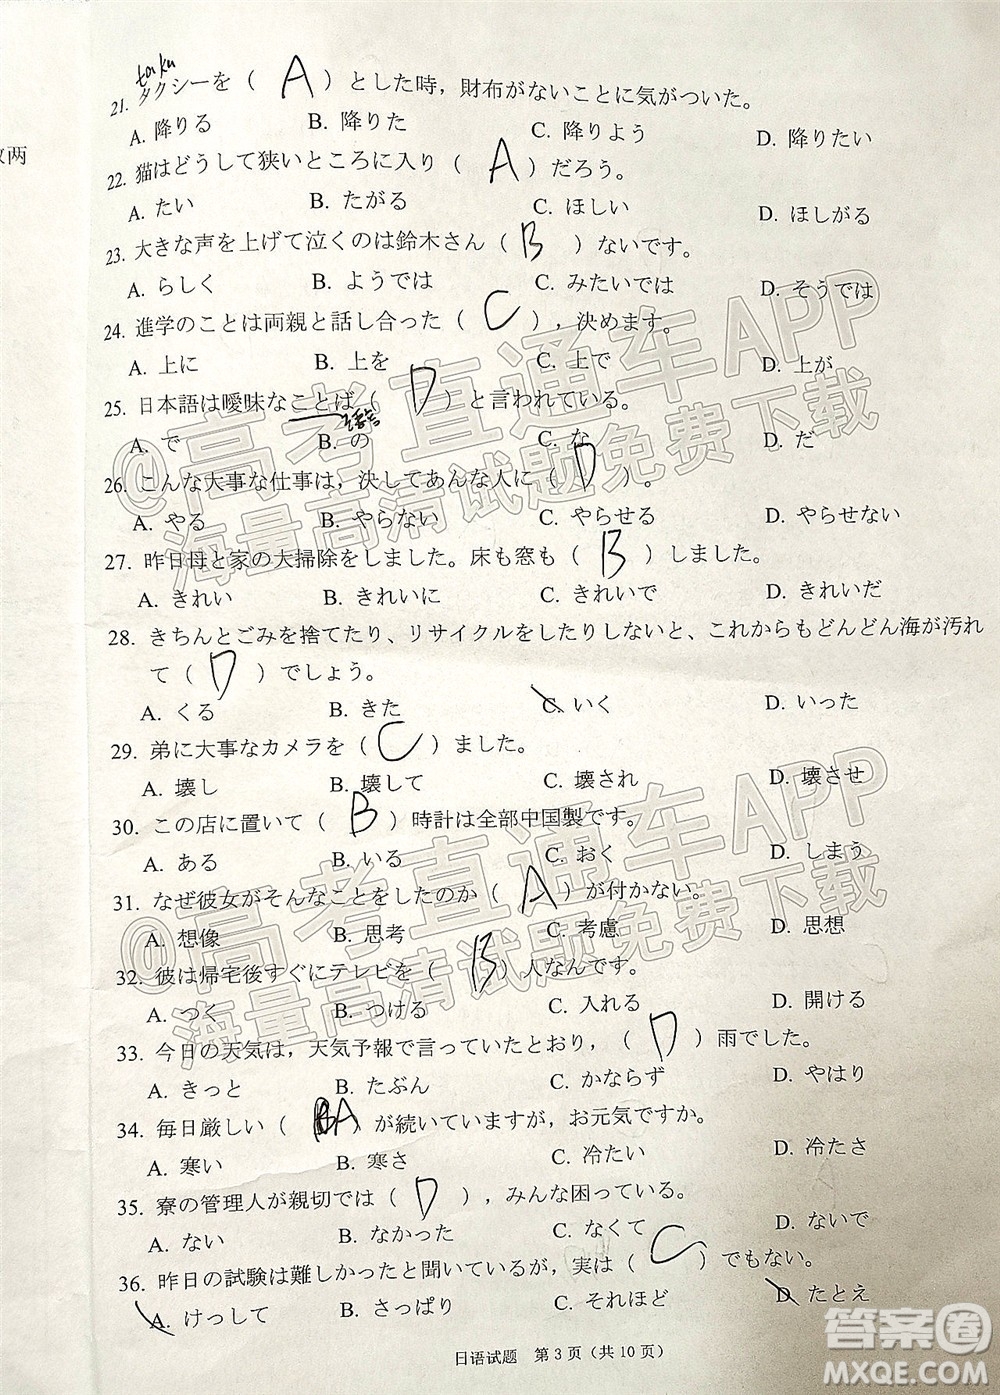 taku
21. タクシーを（ A ）とした時，財布がないことに気がついた。
A. 降りる B. 降りた C. 降りよう D. 降りたい
两
22. 猫はどうして狭いところに入り（ A ）だろう。
A. たい B. たがる C. ほしい D. ほしがる
23. 大きな声を上げて泣くのは鈴木さん（ B ）ないです。
A. らしく B. ようでは C. みたいでは D. そうでは
24. 進学のことは両親と話し合った（ C ），決めます。
A. 上に B. 上を C. 上で D. 上が
25. 日本語は曖昧なことば（ D ）と言われている。
A. で B. の C. な D. だ
26. こんな大事な仕事は，決してあんな人に（ D ）。
A. やる B. やらない C. やらせる D. やらせない
27. 昨日母と家の大掃除をしました。床も窓も（ B ）しました。
A. きれい B. きれいに C. きれいで D. きれいだ
28. きちんとごみを捨てたり、リサイクルをしたりしないと、これからもどんどん海が汚れ
て（ D ）でしょう。
A. くる B. きた C. いく D. いった
29. 弟に大事なカメラを（ C ）ました。
A. 壊し B. 壊して C. 壊され D. 壊させ
30. この店に置いて（ B ）時計は全部中国製です。
A. ある B. いる C. おく D. しまう
31. なぜ彼女がそんなことをしたのか（ A ）が付かない。
A. 想像 B. 思考 C. 考慮 D. 思想
32. 彼は帰宅後すぐにテレビを（ B ）人なんです。
A. つく B. つける C. 入れる D. 開ける
33. 今日の天気は，天気予報で言っていたとおり，（ D ）雨でした。
A. きっと B. たぶん C. かならず D. やはり
34. 毎日厳しい（ A ）が続いていますが，お元気ですか。
A. 寒い B. 寒さ C. 冷たい D. 冷たさ
35. 寮の管理人が親切では（ D ），みんな困っている。
A. ない B. なかった C. なくて D. ないで
36. 昨日の試験は難しかったと聞いているが，実は（ C ）でもない。
A. けっして B. さっぱり C. それほど D. たとえ
日语试题 第3页（共10页）
@高考直通车APP
海量高清试题免费下载
@高考直通车APP
海量高清试题免费下载
答案圈
MXQE.COM